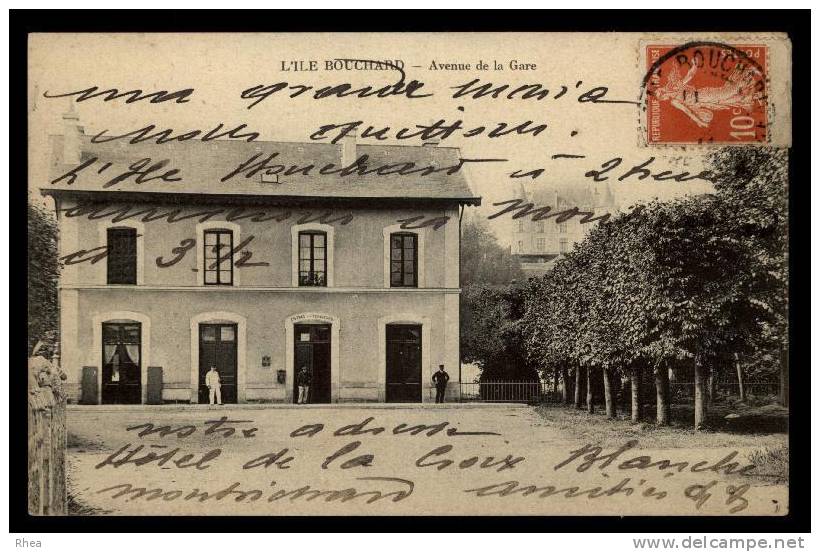 L'ILE BOUCHARD — Avenue de la Gare
ma grande Maria
nous quittons
L'Ile Bouchard à 2 heures
et 3. 1/2
notre adresse
Hôtel de la Croix Blanche
montrichard amitiés
POSTES
REPUBLIQUE FRANÇAISE
10c
BOUCHARD
Rhea
www.delcampe.net